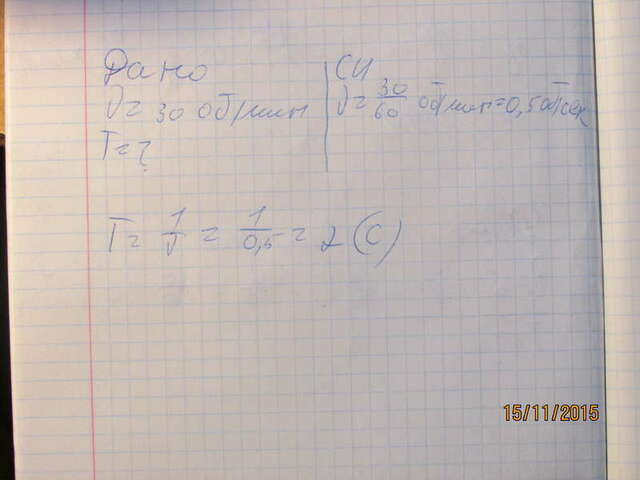 Дано
СИ
ν = 30 об/мин
ν = 30/60 об/мин = 0,5 об/сек
T = ?
T = 1/ν = 1/0,5 = 2 (с)
15/11/2015